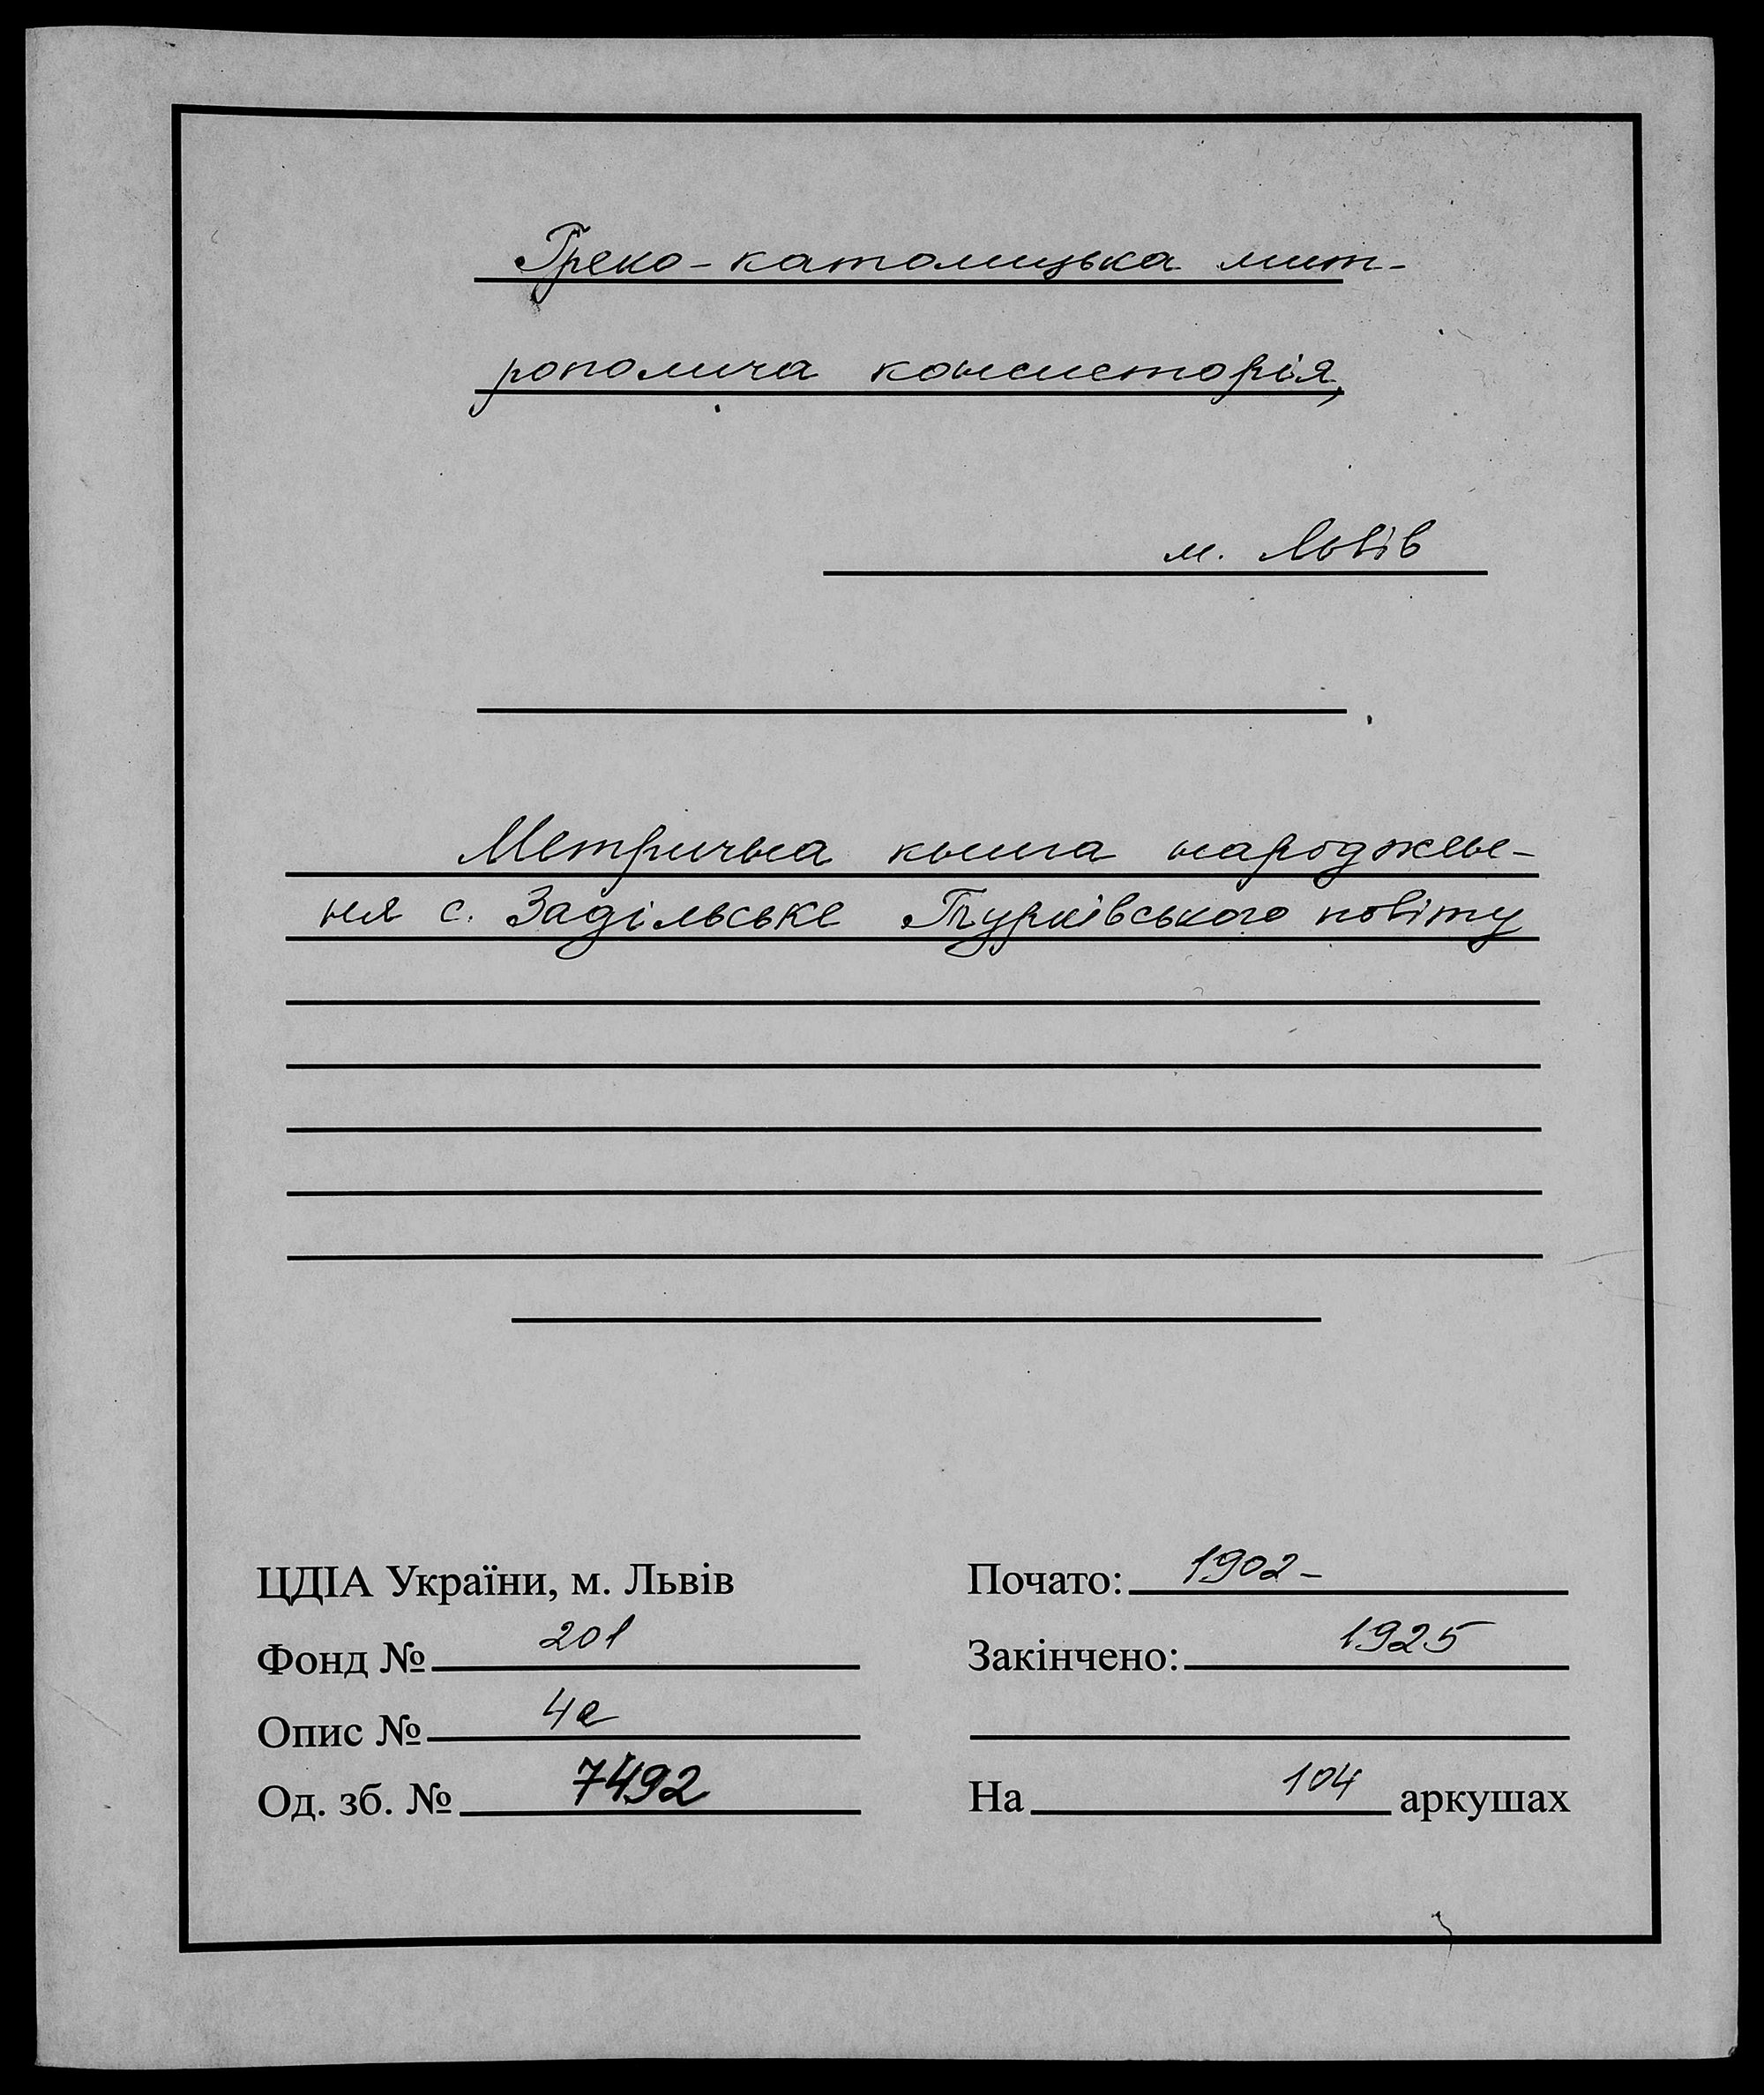 Греко-католицька мит-
рополича консисторія,
м. Львів
Метрична книга народжен-
ня с. Задільське Турківського повіту
ЦДІА України, м. Львів
Фонд № 201
Опис № 4а
Од. зб. № 7492
Почато: 1902-
Закінчено: 1925
На 104 аркушах